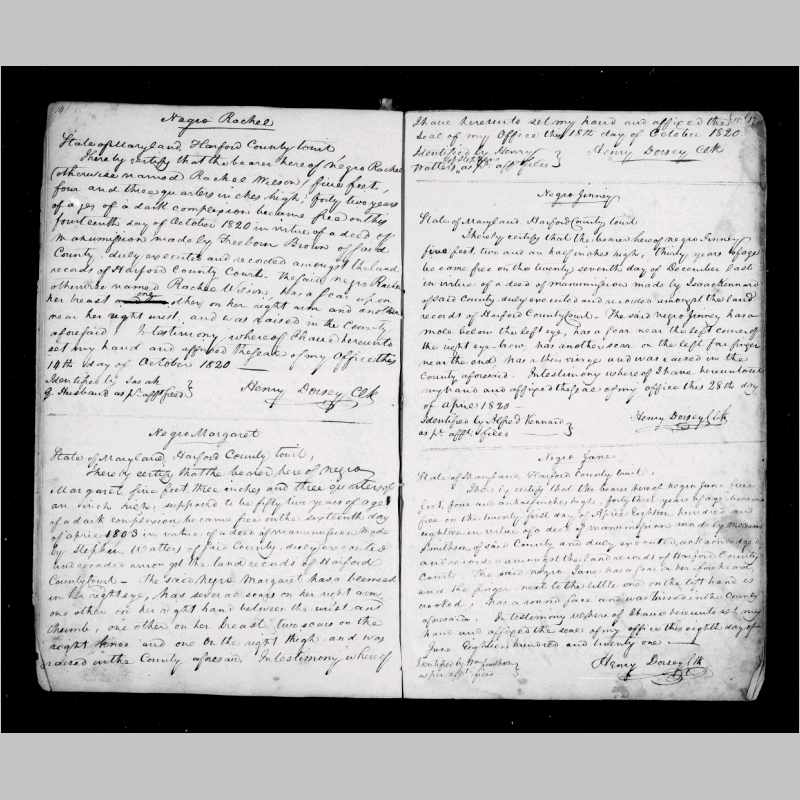 Negro Rachel
State of Maryland, Harford County towit
I hereby certify that the bearer here of negro Rachel
(otherwise named Rachel Wilson) five feet,
four and three quarters inches high; forty two years
of age; of a dark complexion became free on this
fourteenth day of October 1820 in virtue of a deed of
manumission made by Freeborn Brown of said
County, duly executed and recoded amongst the land
records of Harford County Court. The said negro Rachel
otherwise named Rachel Wilson, has a scar upon
her breast one other on her right arm and another
near her right wrest, and was raised in the County
aforesaid. In testimony where of I have hereunto
set my hand and affixed the seal of my Office this
14th day of October 1820
Identified by
Husband as pr. afft filed
Henry Dorsey Clk
Negro Margaret
State of Maryland, Harford County towit,
I hereby certify that the bearer here of negro
Margaret five feet three inches and three quarters of
an inch high, supposed to be fifty two years of age
of a dark complexion became free on the sixteenth day
of april 1803 in virtue of a deed of manumission made
by Stephen Watters of said County, duly executed
and recorded amongst the land records of Harford
County Court – The said negro Margaret has a
in the right eye, has several scars on her right arm
one other on her right hand between the wrist and
thumb, one other on her breast two scars on the
right knee and one on the right thigh and was
raised in the County aforesaid. In testimony where of
I have hereunto set my hand and affixed the
seal of my Office this 18th day of October 1820
Identified by Henry
Watters as pr. afft filed
Henry Dorsey Clk
Negro Jinney
State of Maryland Harford County towit
I hereby certify that the bearer here of negro Jinney
five feet, two and an half inches high, thirty years of age
became free on the twenty seventh day of December last
in virtue of a deed of manumission made by Isaac Kennard
of said County duly executed and recoded amongst the land
records of Harford County Court. The said negro Jinney has a
mole below the left eye, has a scar near the left corner of
the right eye brow has another scar on the left fore finger
near the end has a thin visage and was raised in the
County aforesaid. In testimony where of I have hereunto set
my hand and affixed the seal of my office this 28th day
of april 1820
Identified by Alfred Kennard
as pr. afft filed
Henry Dorsey Clk
Negro Jane
State of Maryland Harford County towit.
I hereby certify that the bearer here of negro Jane five
feet, four and a half inches high, forty three years of age became
free on the twenty first day of April Eighteen hundred and
in virtue of a deed of manumission made by
Smithson of said County and duly executed, acknowledged
and recorded amongst the land records of Harford County
Court. The said negro Jane has a scar in her forehead,
and the finger next to the little one on the left hand is
crooked; has a round face and was raised in the County
aforesaid. In testimony where of I have hereunto set my
hand and affixed the seal of my office this eighth day of
June Eighteen hundred and twenty one
Identified by Wm Smithson
as per afft filed
Henry Dorsey Clk